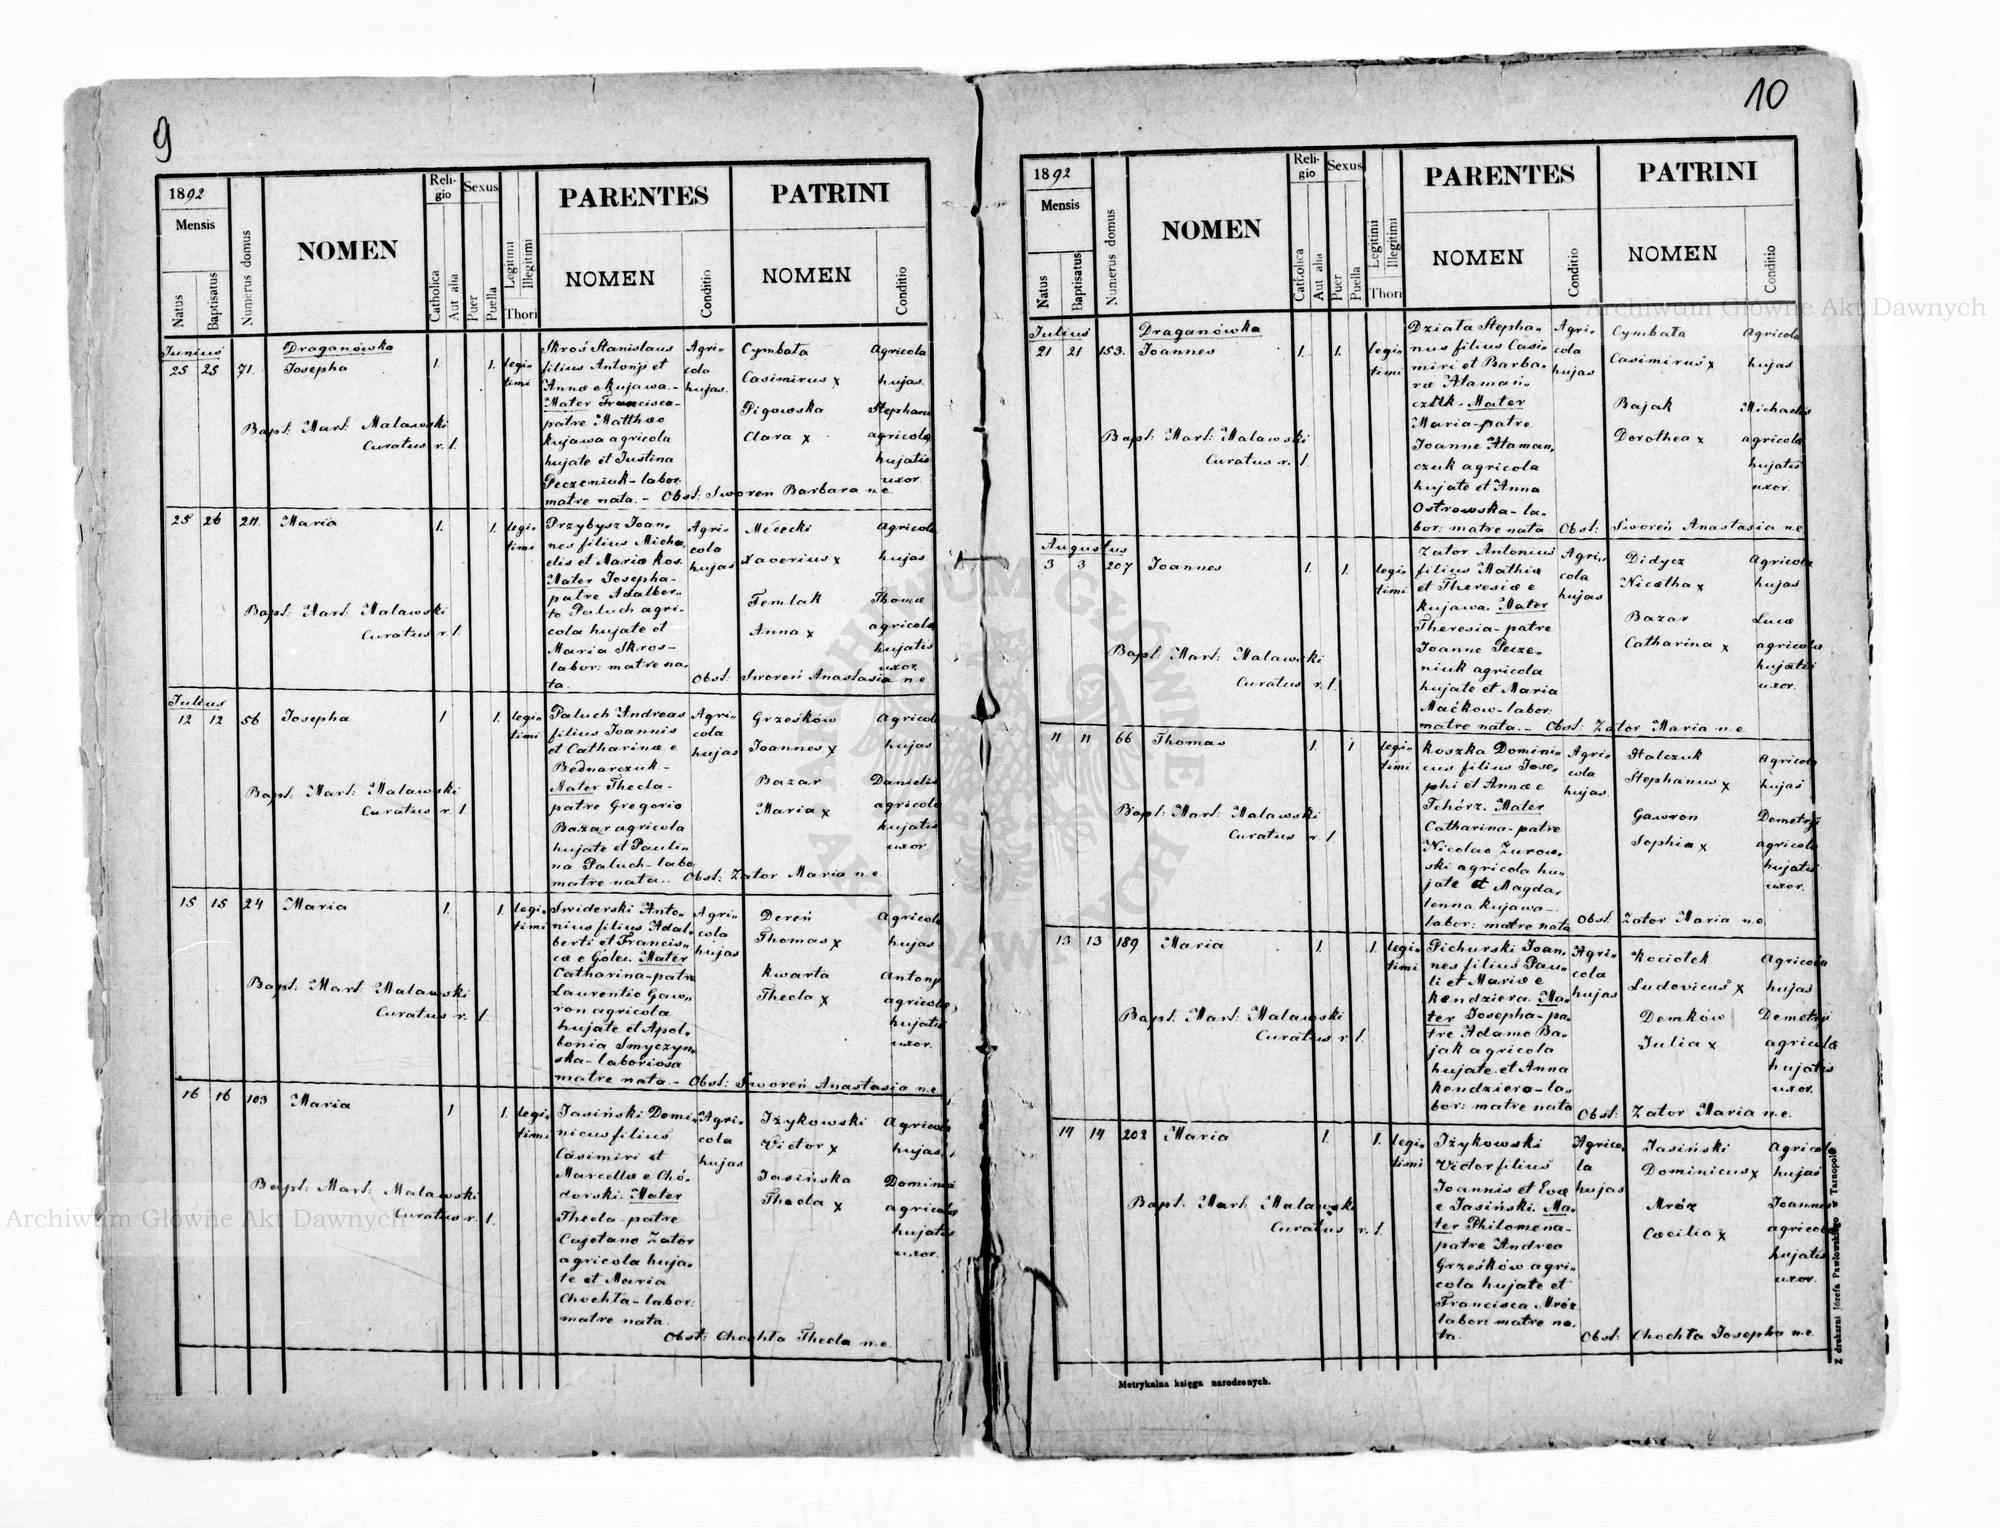 9
1892
Mensis
Natus
Baptisatus
Numerus domus
NOMEN
Religio
Catholica
Aut alia
Sexus
Puer
Puella
Legitimi
Illegitimi
Thori
PARENTES
NOMEN
Conditio
PATRINI
NOMEN
Conditio
Junius
Draganówka
25 25 71. Josepha 1. 1. legi-
timi
Bapt: Mart: Malawski
Curatus r. l.
Skroś Stanislaus
filius Antonji et
Annæ e Kujawa.-
Mater Francisca-
patre Matthæo
Kujawa agricola
hujate et Justina
Peczeniuk-labor:
matre nata.- Obst: Sworen Barbara n.e.
Agri-
cola
hujas.
Cymbała
Casimirus x
Pigowska
Clara x
Agricola
hujas.
Stephani
agricolæ
hujatis
uxor.
25 26 211. Maria 1. 1. legi-
timi
Bapt: Mart: Malawski
Curatus r. l.
Przybysz Joan-
nes filius Micha-
elis et Mariæ Kos.
Mater Josepha-
patre Adalber-
to Paluch agri-
cola hujate et
Maria Skros-
labor: matre na-
ta.
Obst: Sworeń Anastasia n.e.
Agri-
cola
hujas
Mełecki
Xaverius x
Temlak
Anna x
Agricola
hujas
Thomæ
agricolæ
hujatis
uxor.
Julius
12 12 56 Josepha 1 1. legi-
timi
Bapt: Mart: Malawski
Curatus r. l.
Paluch Andreas
filius Joannis
et Catharinæ e
Bednarczuk-
Mater Thecla-
patre Gregorio
Bazar agricola
hujate et Pauli-
na Paluch-labo:
matre nata.. Obst: Zator Maria n.e.
Agri-
cola
hujas
Grześków
Joannes x
Bazar
Maria x
Agricola
hujas
Danielis
agricolæ
hujatis
uxor.
15 15 24 Maria 1. 1. legi-
timi
Bapt: Mart: Malawski
Curatus r. l.
Swiderski Anto-
nius filius Adal-
berti et Francis-
cæ e Golec. Mater
Catharina-patre
Laurentio Gaw-
ron agricola
hujate et Apol-
lonia Smyczyn-
ska-laboriosa
matre nata.- Obst: Sworeń Anastasia n.e.
Agri-
cola
hujas
Dereń
Thomas x
Kwarta
Thecla x
Agricola
hujas
Antonji
agricolæ
hujatis
uxor.
16 16 103 Maria 1 1. legi-
timi
Bapt: Mart: Malawski
Curatus r. l.
Jasiński Domi-
nicus filius
Casimiri et
Marcellæ e Chó-
dorski. Mater
Thecla-patre
Cajetano Zator
agricola huja-
te et Maria
Chochła-labor:
matre nata.
Obst: Chochła Thecla n.e.
Agri-
cola
hujas
Iżykowski
Victor x
Jasińska
Thecla x
Agricola
hujas.
Dominici
agricolæ
hujatis
uxor.
10
1892
Mensis
Natus
Baptisatus
Numerus domus
NOMEN
Religio
Catholica
Aut alia
Sexus
Puer
Puella
Legitimi
Illegitimi
Thori
PARENTES
NOMEN
Conditio
PATRINI
NOMEN
Conditio
Julius
Draganówka
21 21 153. Joannes 1. 1. legi-
timi
Bapt: Mart: Malawski
Curatus r. l.
Działa Stepha-
nus filius Casi-
miri et Barba-
ræ Ataman-
Mater
Maria-patre
Joanne Ataman-
czuk agricola
hujate et Anna
Ostrowska-la-
bor: matre nata Obst: Sworeń Anastasia n.e.
Agri-
cola
hujas
Cymbała
Casimirus x
Bajak
Dorothea x
Agricola
hujas
Michaelis
agricolæ
hujatis
uxor.
Augustus
3 3 207 Joannes 1. 1. legi-
timi
Bapt: Mart: Malawski
Curatus r. l.
Zator Antonius
filius Mathiæ
et Theresiæ e
Kujawa. Mater
Theresia-patre
Joanne Pecze-
niuk agricola
hujate et Maria
Maćkow-labor:
matre nata.- Obst: Zator Maria n.e.
Agri-
cola
hujas
Didycz
Nicetha x
Bazar
Catharina x
Agricola
hujas
Lucæ
agricolæ
hujatis
uxor.
11 11 66 Thomas 1. 1 legi-
timi
Bapt: Mart: Malawski
Curatus r. l.
Koszka Domini-
cus filius Jose-
phi et Annæ e
Tchórz. Mater
Catharina-patre
Nicolao Zurow-
ski agricola hu-
jate et Magda-
lenna Kujawa-
labor: matre nata Obst: Zator Maria n.e.
Agri-
cola
hujas.
Halczuk
Stephanus x
Gawron
Sophia x
Agricola
hujas
Demetrji
agricolæ
hujatis
uxor.
13 13 189 Maria 1. 1. legi-
timi
Bapt: Mart: Malawski
Curatus r. l.
Pichurski Joan-
nes filius Pau-
li et Mariæ e
Kendziera. Ma-
ter Josepha-pa-
tre Adamo Ba-
jak agricola
hujate et Anna
Kendziera-la-
bor: matre nata Obst: Zator Maria n.e.
Agri-
cola
hujas
Kociołek
Ludovicus x
Demków
Julia x
Agricola
hujas
Demetrji
agricolæ
hujatis
uxor.
14 14 202 Maria 1. 1. legi-
timi
Bapt: Mart: Malawski
Curatus r. l.
Iżykowski
Victor filius
Joannis et Evæ
e Jasiński. Ma-
ter Philomena-
patre Andrea
Grześków agri-
cola hujate et
Francisca Mróz
labor: matre na-
ta. Obst: Chochła Josepha n.e.
Agrico-
la
hujas
Jasiński
Dominicus x
Mróz
Cæcilia x
Agricola
hujas
Joannis
agricolæ
hujatis
uxor.
Metrykalna księga narodzonych.
Z drukarni Józefa Pawłowskiego w Tarnopolu
Archiwum Główne Akt Dawnych
Archiwum Główne Akt Dawnych
ARCHIWUM GŁÓWNE AKT DAWNYCH